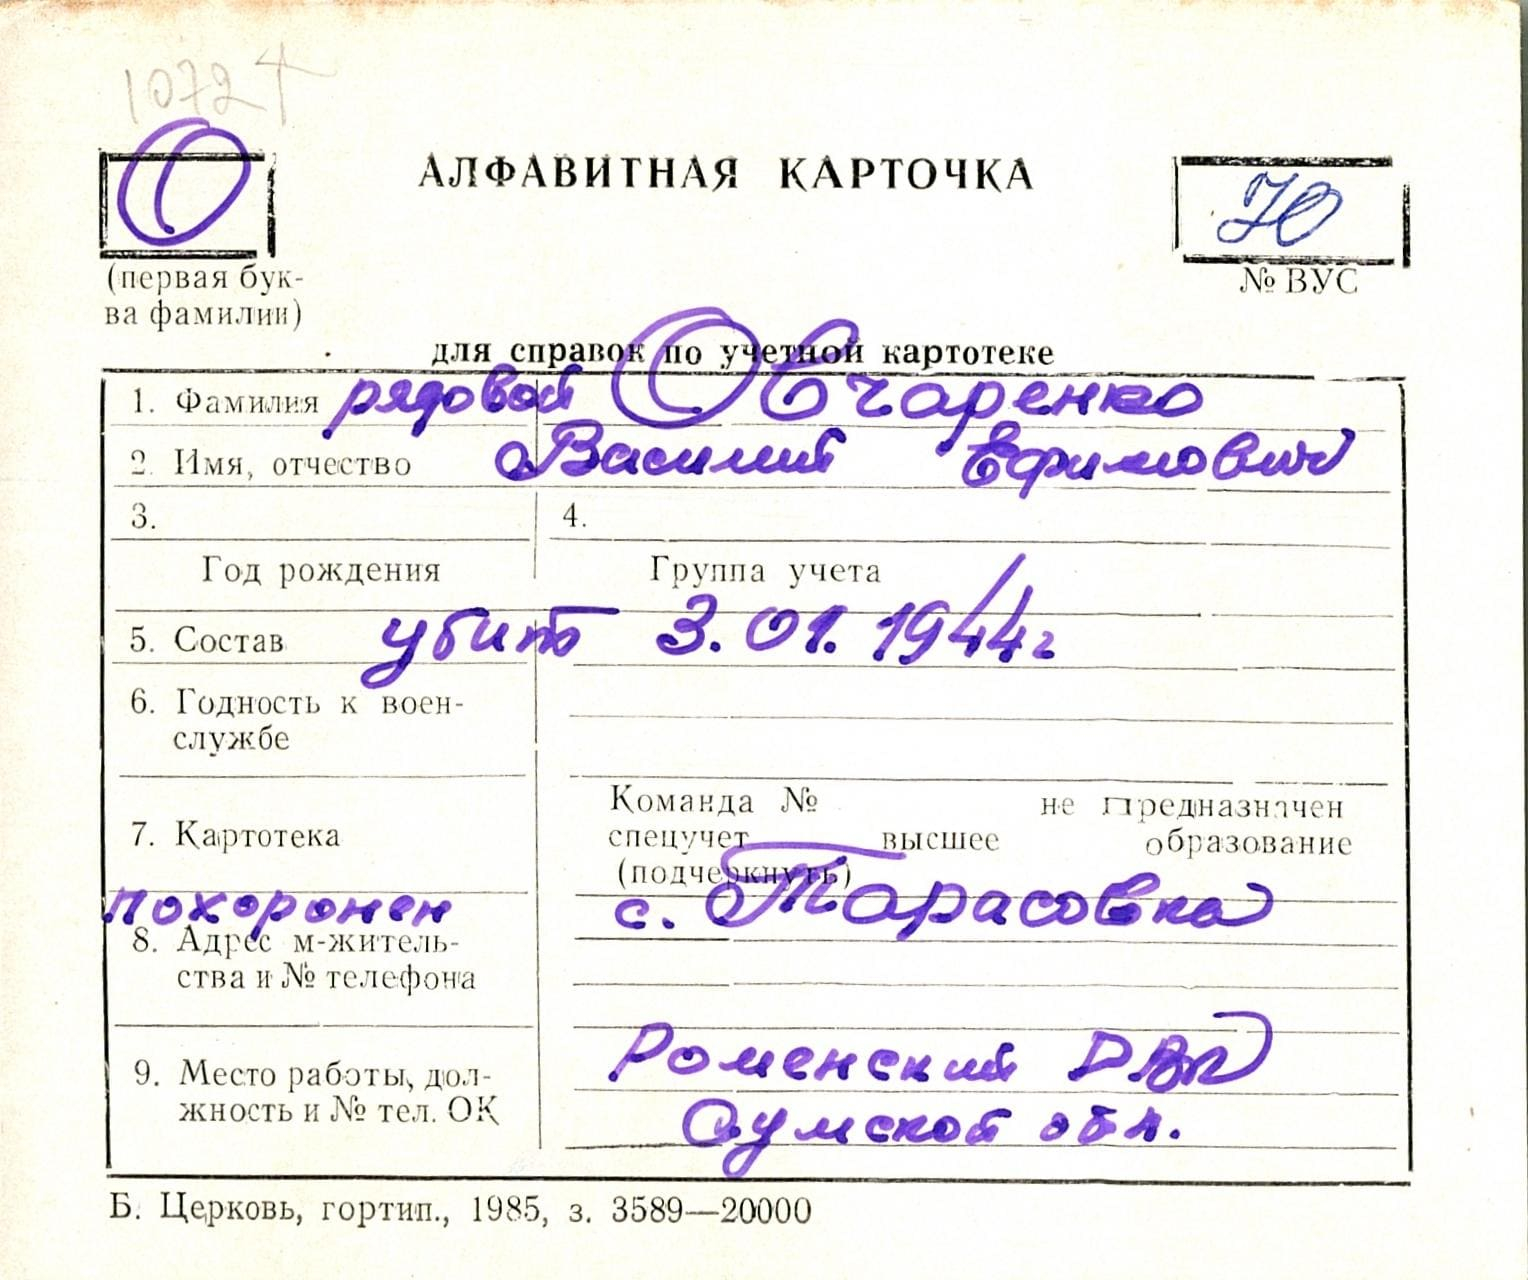 1072
О
АЛФАВИТНАЯ КАРТОЧКА
70
(первая бук-
ва фамилии)
№ ВУС
для справок по учетной картотеке
1. Фамилия рядовой Овчаренко
2. Имя, отчество Василий Ефимович
3. 4.
Год рождения Группа учета
5. Состав убит 3.01.1944г
6. Годность к воен-
службе
Команда № не предназначен
7. Картотека спецучет высшее образование
(подчеркнуть)
похоронен с. Тарасовка
8. Адрес м-житель-
ства и № телефона
Роменский РВК
9. Место работы, дол-
жность и № тел. ОК
Сумской обл.
Б. Церковь, гортип., 1985, з. 3589—20000